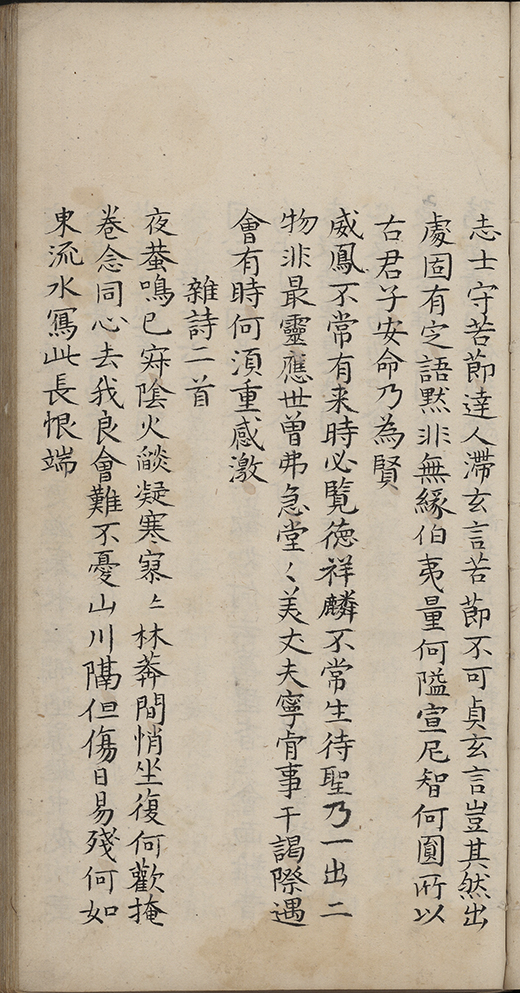 志士守苦節達人滯玄言苦節不可貞玄言豈其然出
處固有定語默非無緣伯夷量何隘宣尼智何圓所以
古君子安命乃為賢
威鳳不常有来時必覽德祥麟不常生待聖乃一出二
物非最靈應世曾弗急堂〻美丈夫寧肯事干謁際遇
會有時何須重感激
雜詩二首
夜蛬鳴已寂陰火燄凝寒寥〻林莽間悄坐復何歡掩
卷念同心去我良會難不憂山川隔但傷日易殘何如
東流水寫此長恨端